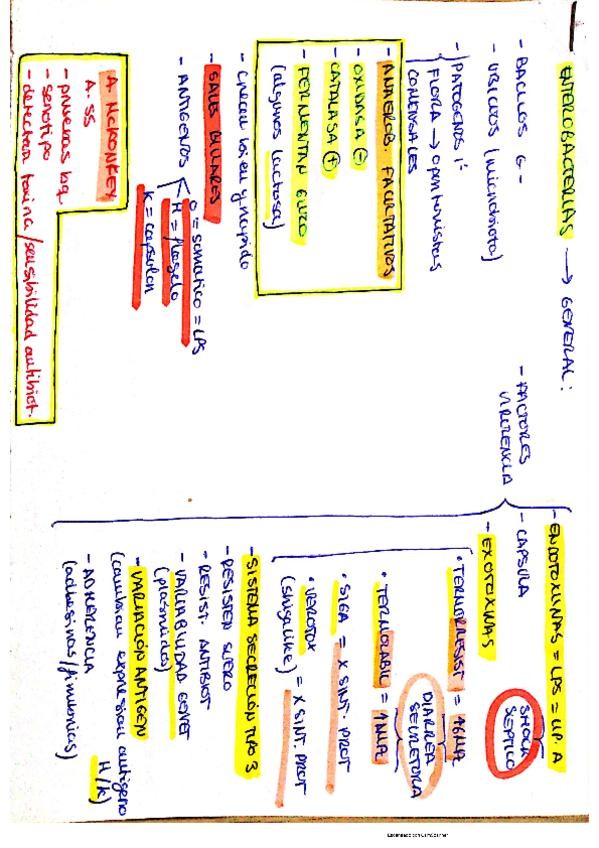 ENTEROBACTERIAS → GENERAL:
- BACILOS G -
- UBICUOS (microbiota)
- PATOGENOS 1º
FLORA → oportunistas
COMENSALES
- ANAEROB. FACULTATIVOS
- OXIDASA ⊖
- CATALASA ⊕
- FERMENTAN GLUCO
(algunos lactosa)
- crecen bien y rapido
- SALES BILIARES
- ANTIGENOS
O = somatico = LPS
H = flagelo
K = capsular
A. McKONKEY
A. SS
- pruebas bq
- serotipo
- detectan toxina / sensibilidad antibiot.
- FACTORES
VIRULENCIA
- ENDOTOXINAS = LPS = LIP. A
SHOCK
SEPTICO
- CAPSULA
- EXOTOXINAS
• TERMORRESIST =
DIARREA
SECRETORA
• TERMOLABIL =
• SIGA = X SINT. PROT
• VEROTOX
(shigalike) = X SINT. PROT
- SISTEMA SECRECIÓN TIPO 3
- RESISTEN SUERO
- RESIST. ANTIBIOT
- VARIABILIDAD GENET
(plasmidos)
- VARIACIÓN ANTIGEN
(cambian expresion antigeno
H/K)
- ADHERENCIA
(adhesinas/fimbrias)
Escaneado con CamScanner